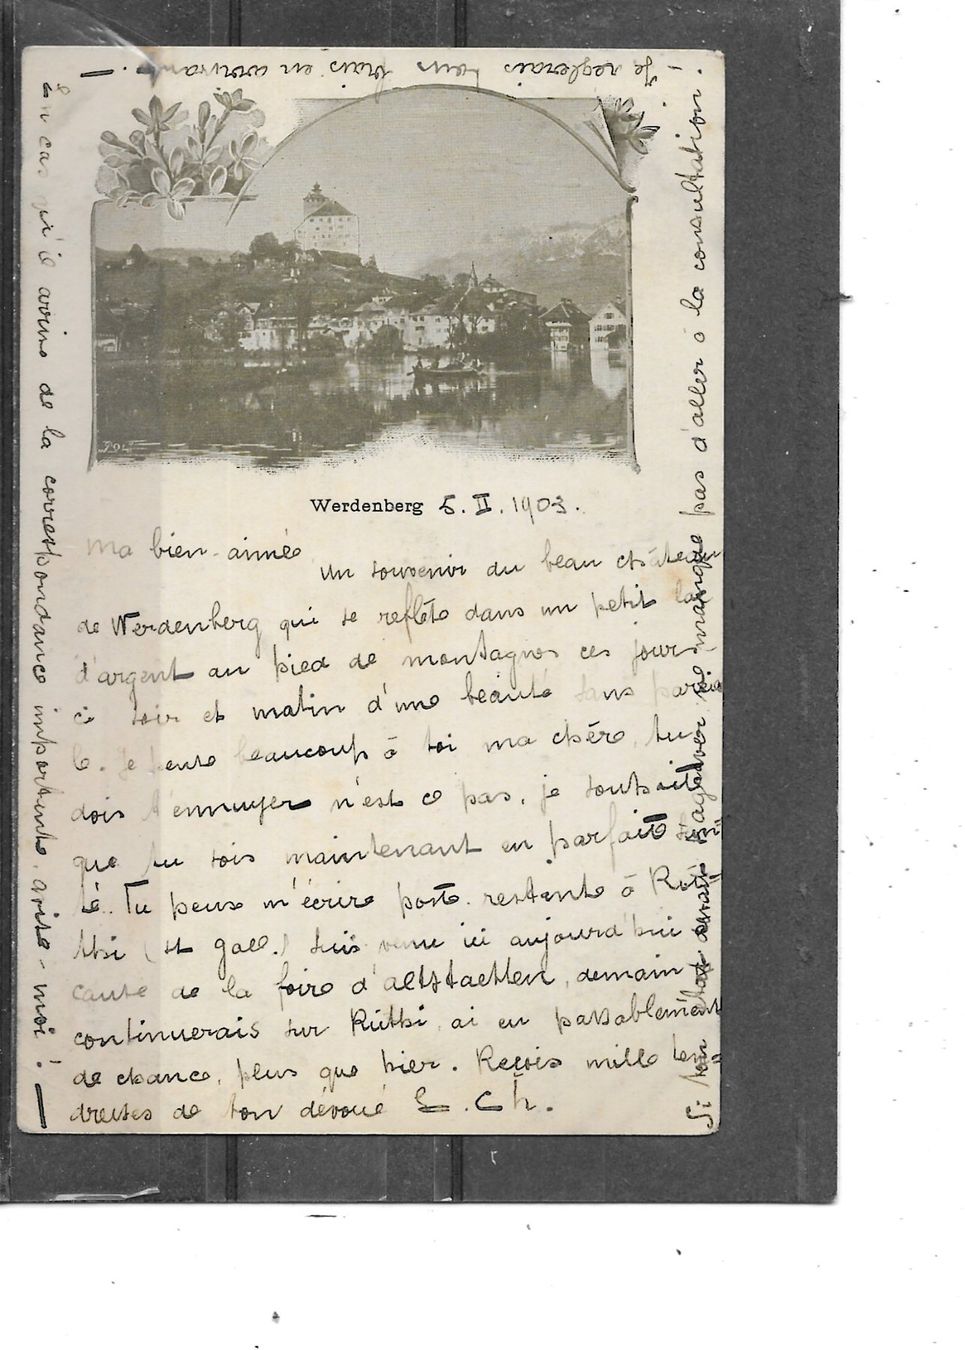 Werdenberg 5. II. 1903.
Ma bien-aimée
un souvenir du beau château
de Werdenberg qui se reflète dans un petit lac
d'argent au pied de montagnes ces jours-
ci soir et matin d'une beauté sans pareil
le. Je pense beaucoup à toi ma chère, tu
dois t'ennuyer n'est ce pas, je souhaite
que tu sois maintenant en parfaite san-
té. Tu peux m'écrire poste restante à Rü-
thi (St Gall.) Suis venu ici aujourd'hui
cause de la foire d'Altstaetten, demain
continuerais sur Rüthi, ai eu passablement
de chance, plus que hier. Reçois mille ten-
dresses de ton dévoué E. Ch.
Si ton état devait s'aggraver ne manque pas d'aller à la consultation.
- Je reglerais tous frais en arrivant. -
En cas qu'il arrive de la correspondance importante, avise-moi! -